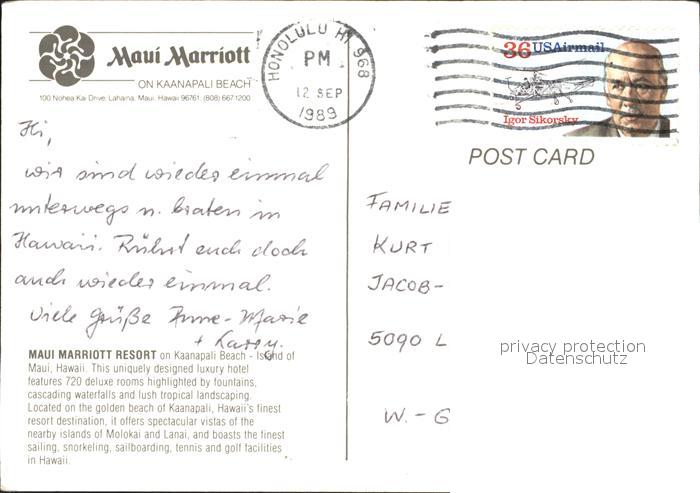 Maui Marriott
ON KAANAPALI BEACH
100 Nohea Kai Drive, Lahaina, Maui, Hawaii 96761 (808) 667-1200
HONOLULU HI 968
PM
12 SEP
1989
36 USAirmail
Igor Sikorsky
POST CARD
Hi,
wir sind wieder einmal
unterwegs u. braten in
Hawaii. Rührt euch doch
auch wieder einmal.
Viele Grüße Anne-Marie
+
FAMILIE
KURT
JACOB-
5090 L
W.-G
privacy protection
Datenschutz
MAUI MARRIOTT RESORT on Kaanapali Beach - Island of
Maui, Hawaii. This uniquely designed luxury hotel
features 720 deluxe rooms highlighted by fountains,
cascading waterfalls and lush tropical landscaping.
Located on the golden beach of Kaanapali, Hawaii's finest
resort destination, it offers spectacular vistas of the
nearby islands of Molokai and Lanai, and boasts the finest
sailing, snorkeling, sailboarding, tennis and golf facilities
in Hawaii.